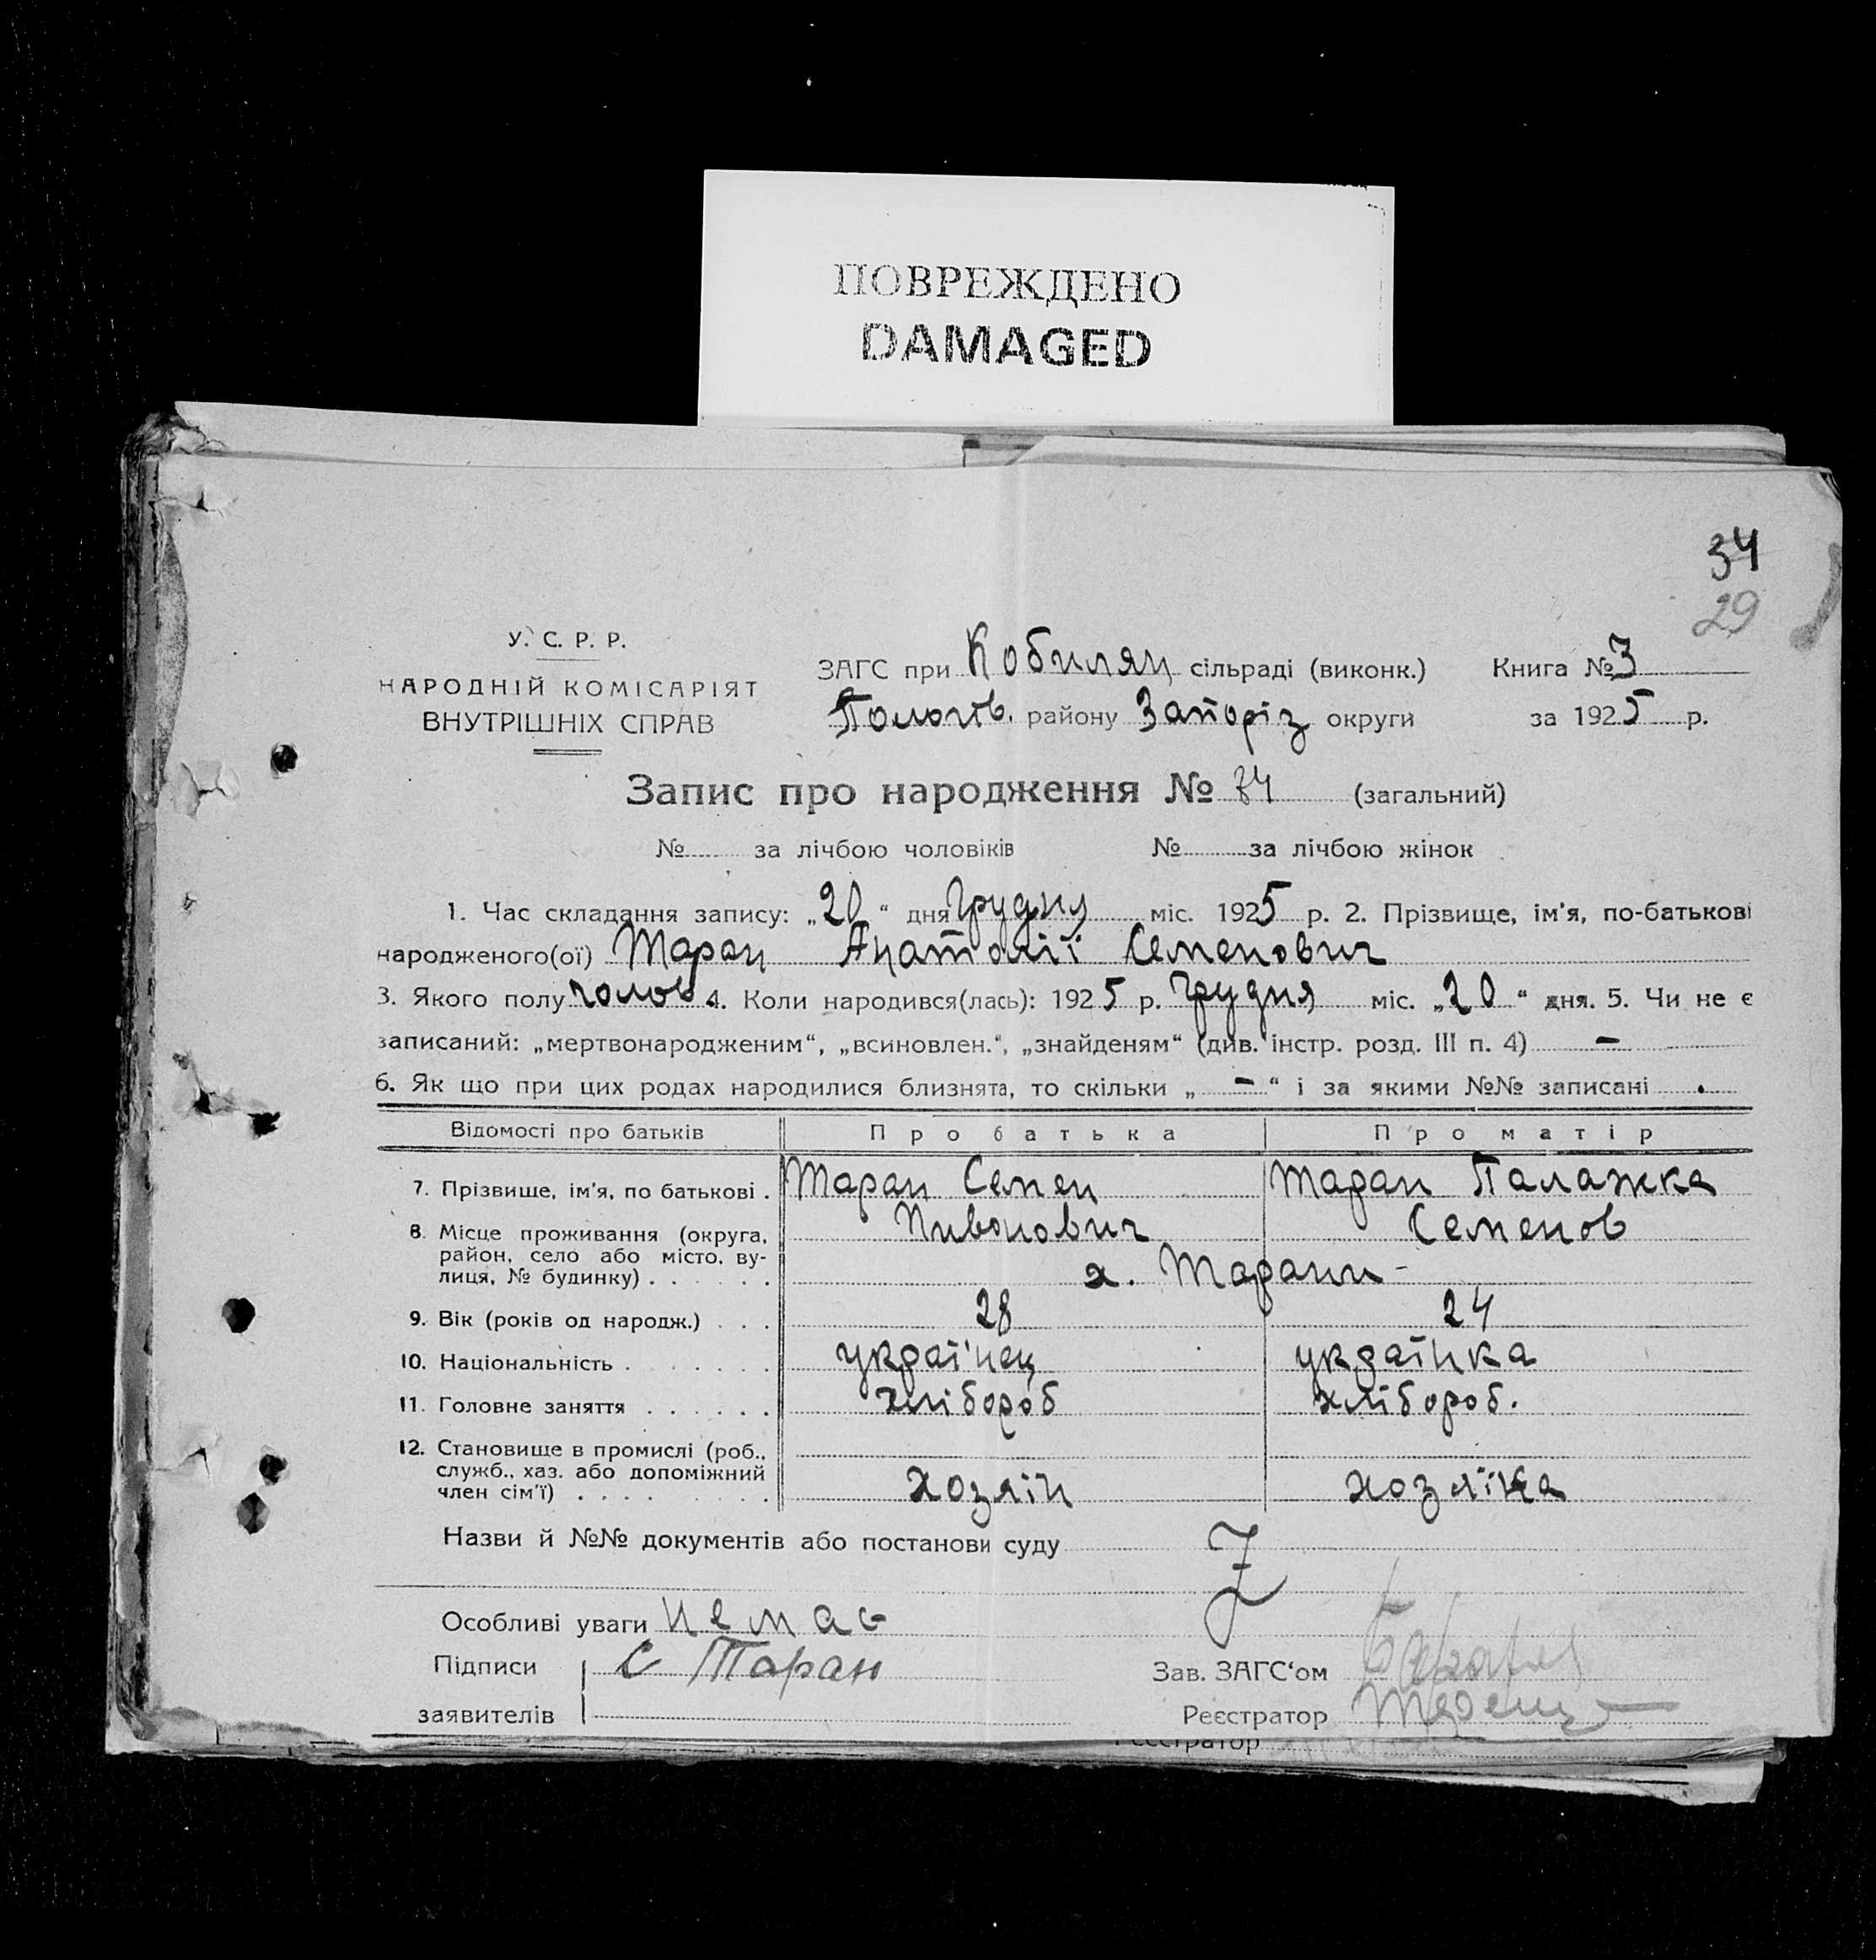 ПОВРЕЖДЕНО
DAMAGED
34
29
У. С. Р. Р.
НАРОДНІЙ КОМІСАРІЯТ
ВНУТРІШНІХ СПРАВ
ЗАГС при Кобиляц сільраді (виконк.) Книга № 3
Пологів. району Запоріз округи за 1925 р.
Запис про народження № 34 (загальний)
№ за лічбою чоловіків № за лічбою жінок
1. Час складання запису: „20“ дня Грудня міс. 1925 р. 2. Прізвище, ім'я, по-батькові
народженого(ої) Таран Анатолії Семенович
3. Якого полу чолов 4. Коли народився(лась): 1925 р. Грудня міс. „20“ дня. 5. Чи не є
записаний: „мертвонародженим“, „всиновлен.“, „знайденям“ (див. інстр. розд. III п. 4) –
6. Як що при цих родах народилися близнята, то скільки „ – “ і за якими №№ записані .
Відомості про батьків Про батька Про матір
7. Прізвище, ім'я, по батькові . Таран Семен Таран Палажка
Пивонович Семенов
8. Місце проживання (округа,
район, село або місто, ву-
лиця, № будинку) . . . . . . х. Тарани -
9. Вік (років од народж.) . . . 28 24
10. Національність . . . . . . українец українка
11. Головне заняття . . . . . . хлібороб хлібороб.
12. Становище в промислі (роб.,
служб., хаз. або допоміжний
член сім'ї) . . . . хозяін хозяїка
Назви й №№ документів або постанови суду
Особливі уваги немає
Підписи С Таран Зав. ЗАГС'ом
заявителів Реєстратор
Реєстратор